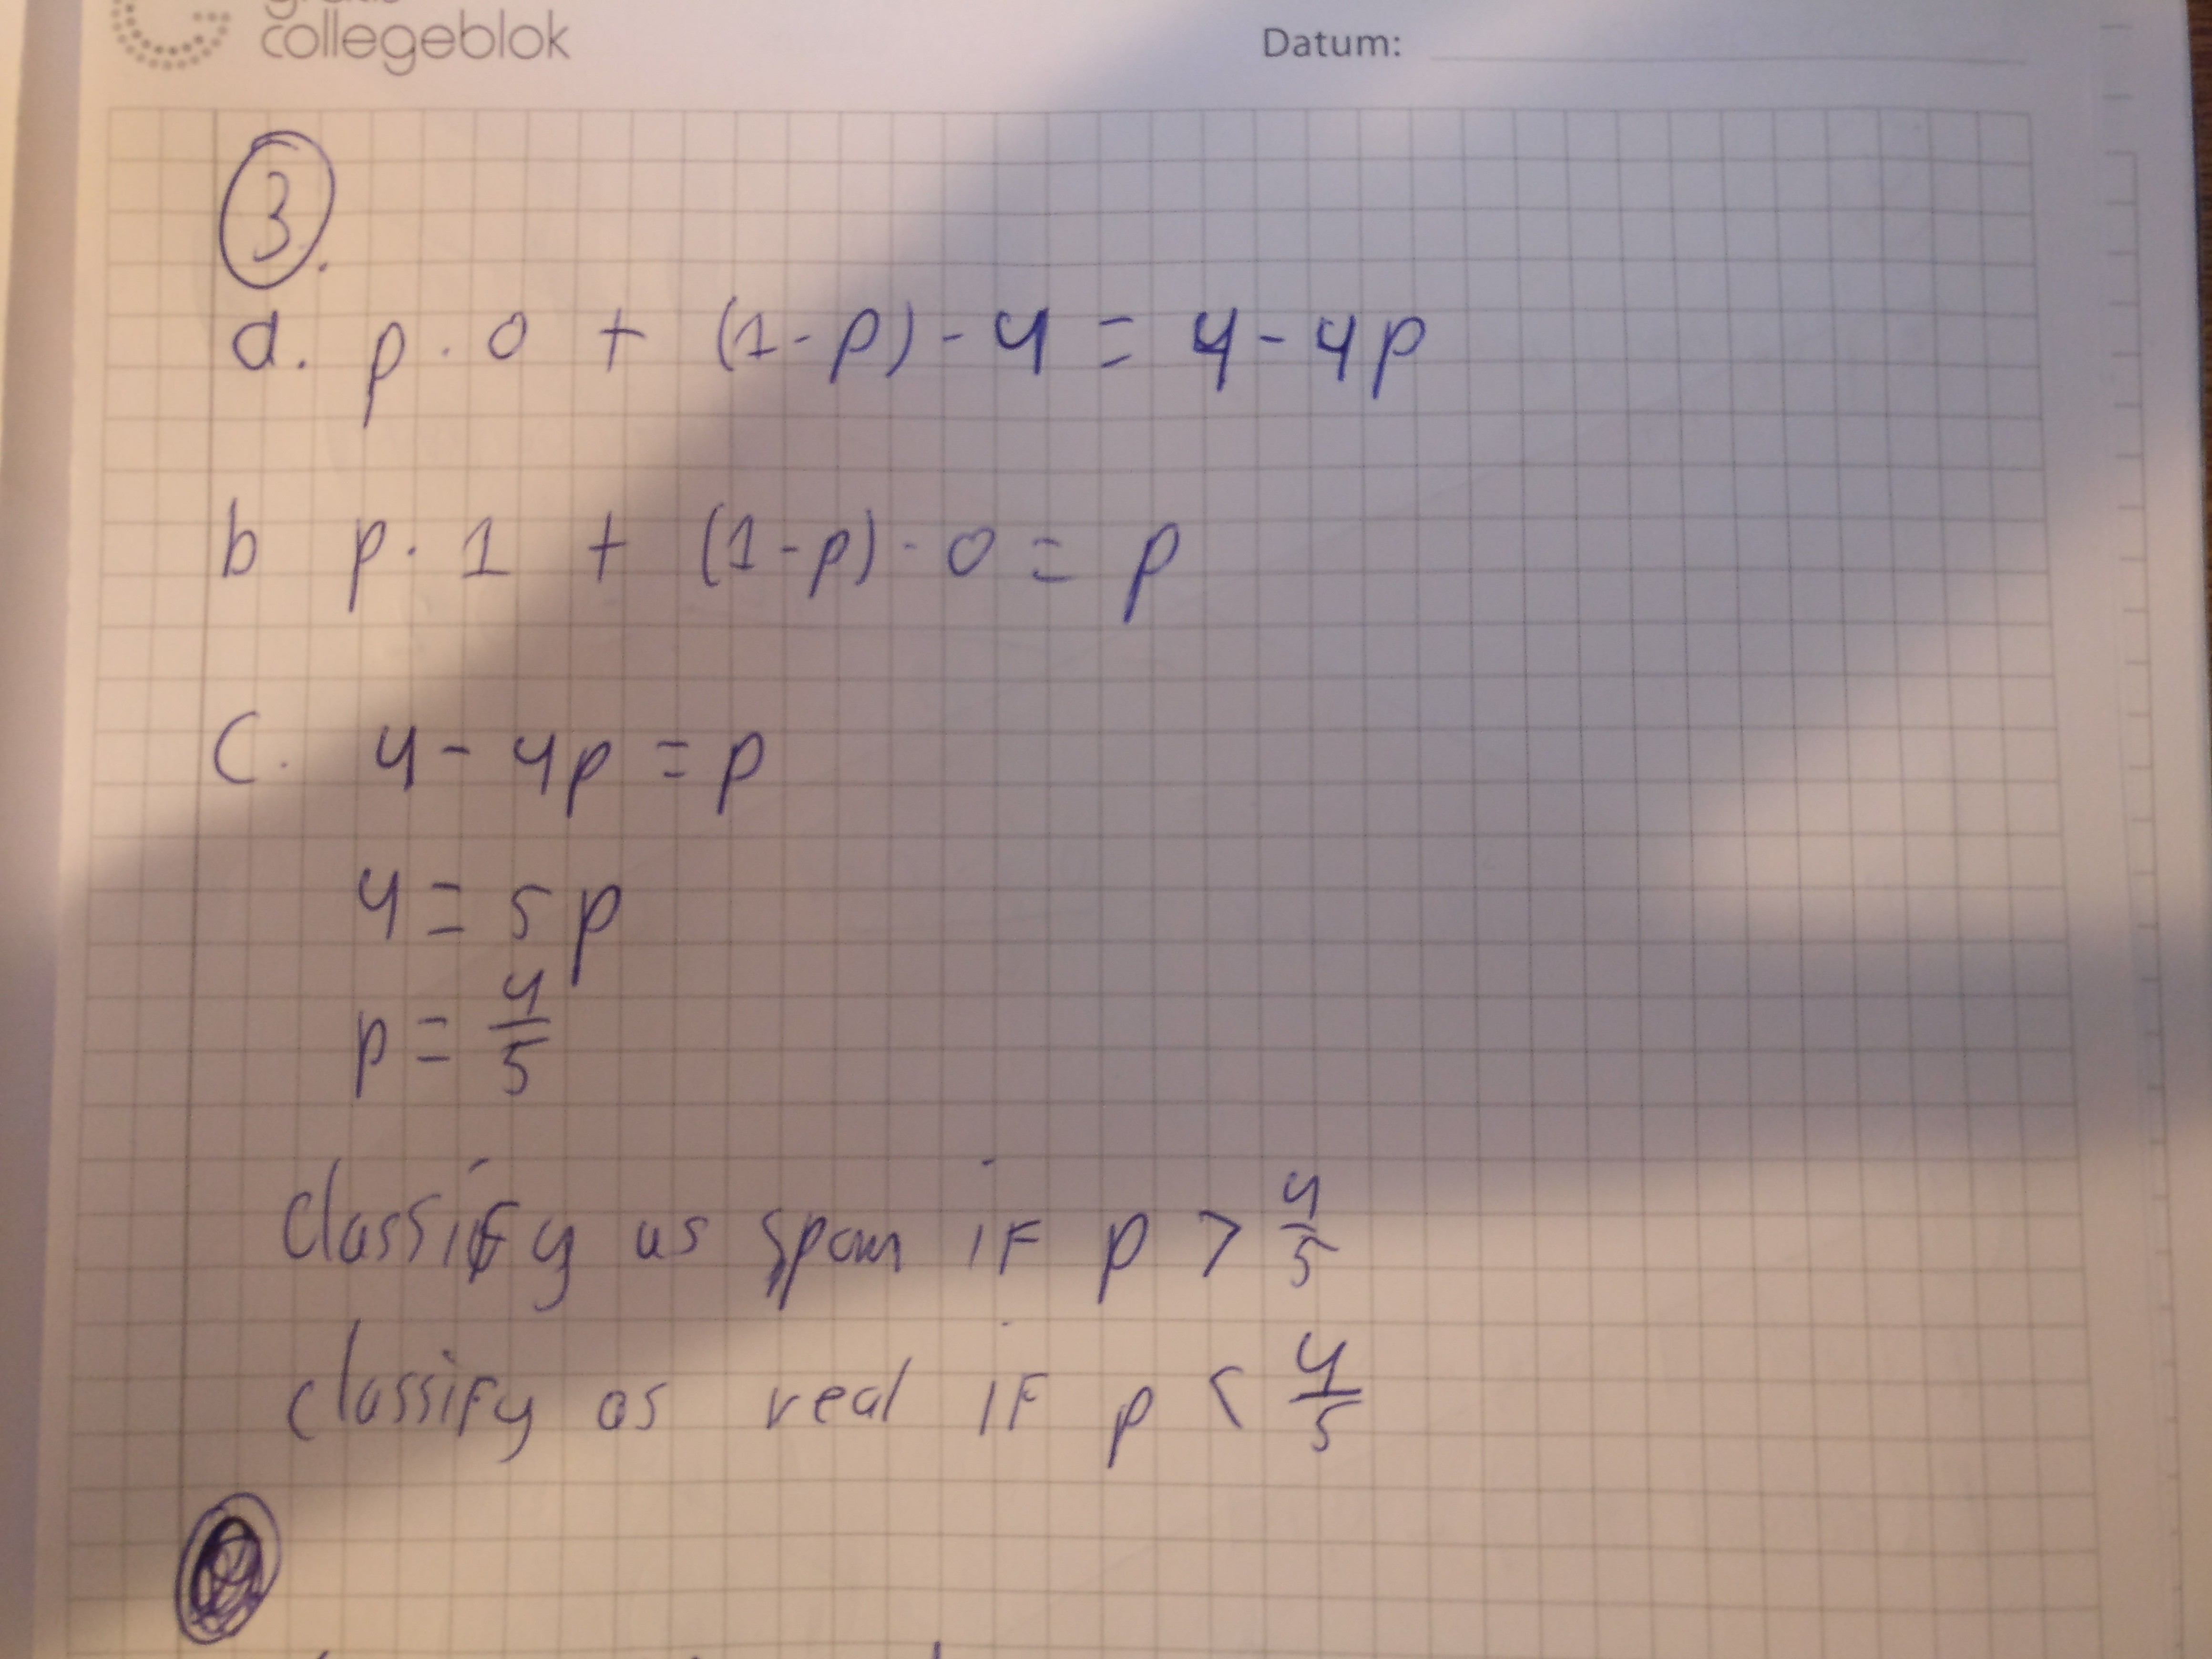 collegeblok
Datum:
3.
a. p · 0 + (1-p) - 4 = 4 - 4p
b p · 1 + (1-p) · 0 = p
c. 4 - 4p = p
4 = 5p
p = 4/5
classify as spam if p > 4/5
classify as real if p < 4/5